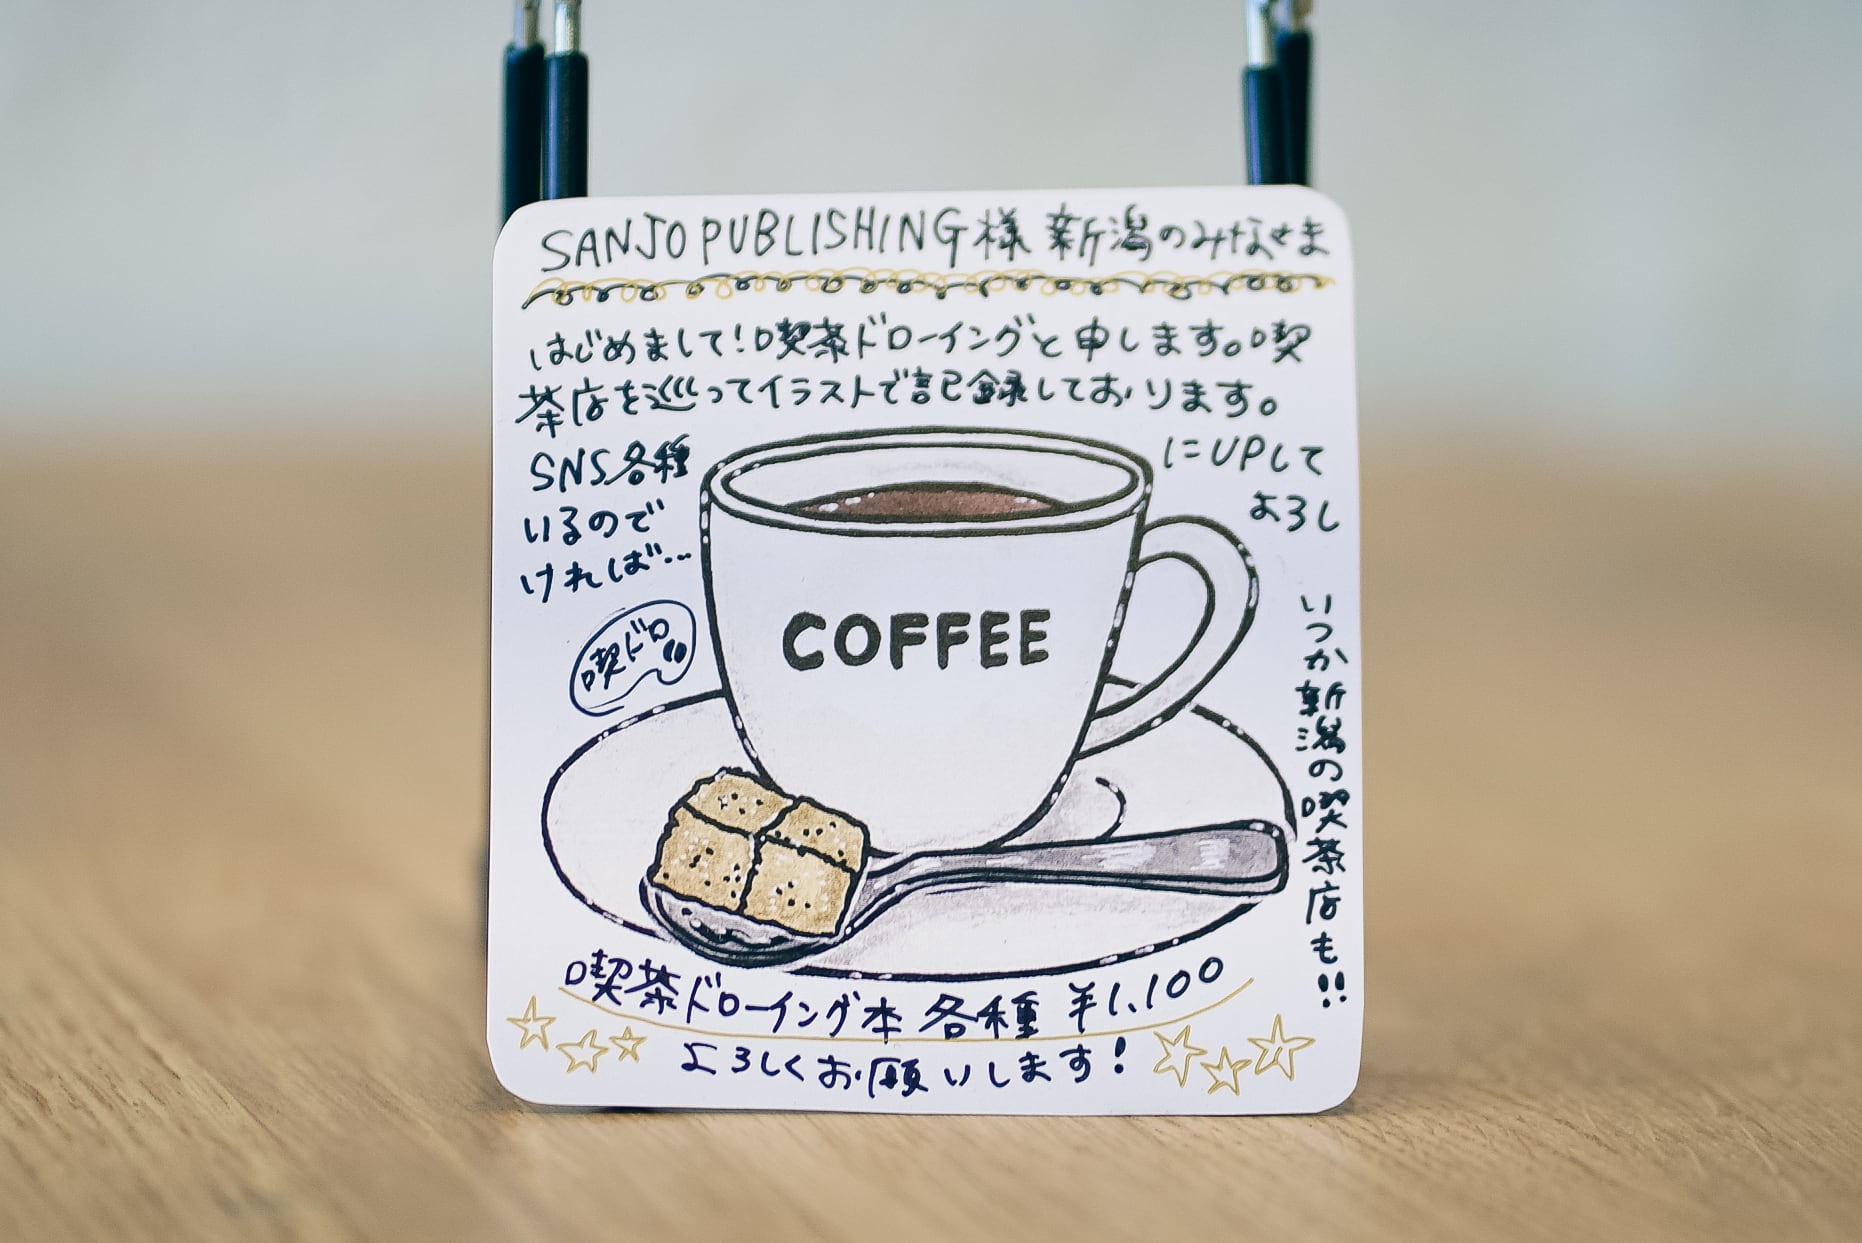 SANJO PUBLISHING様 新潟のみなさま
はじめまして！喫茶ドローイングと申します。喫
茶店を巡ってイラストで記録しております。
SNS各種 にUPして
いるので よろし
ければ…
喫ドロ
COFFEE
いつか新潟の喫茶店も!!
喫茶ドローイング本 各種 ¥1,100
よろしくお願いします！